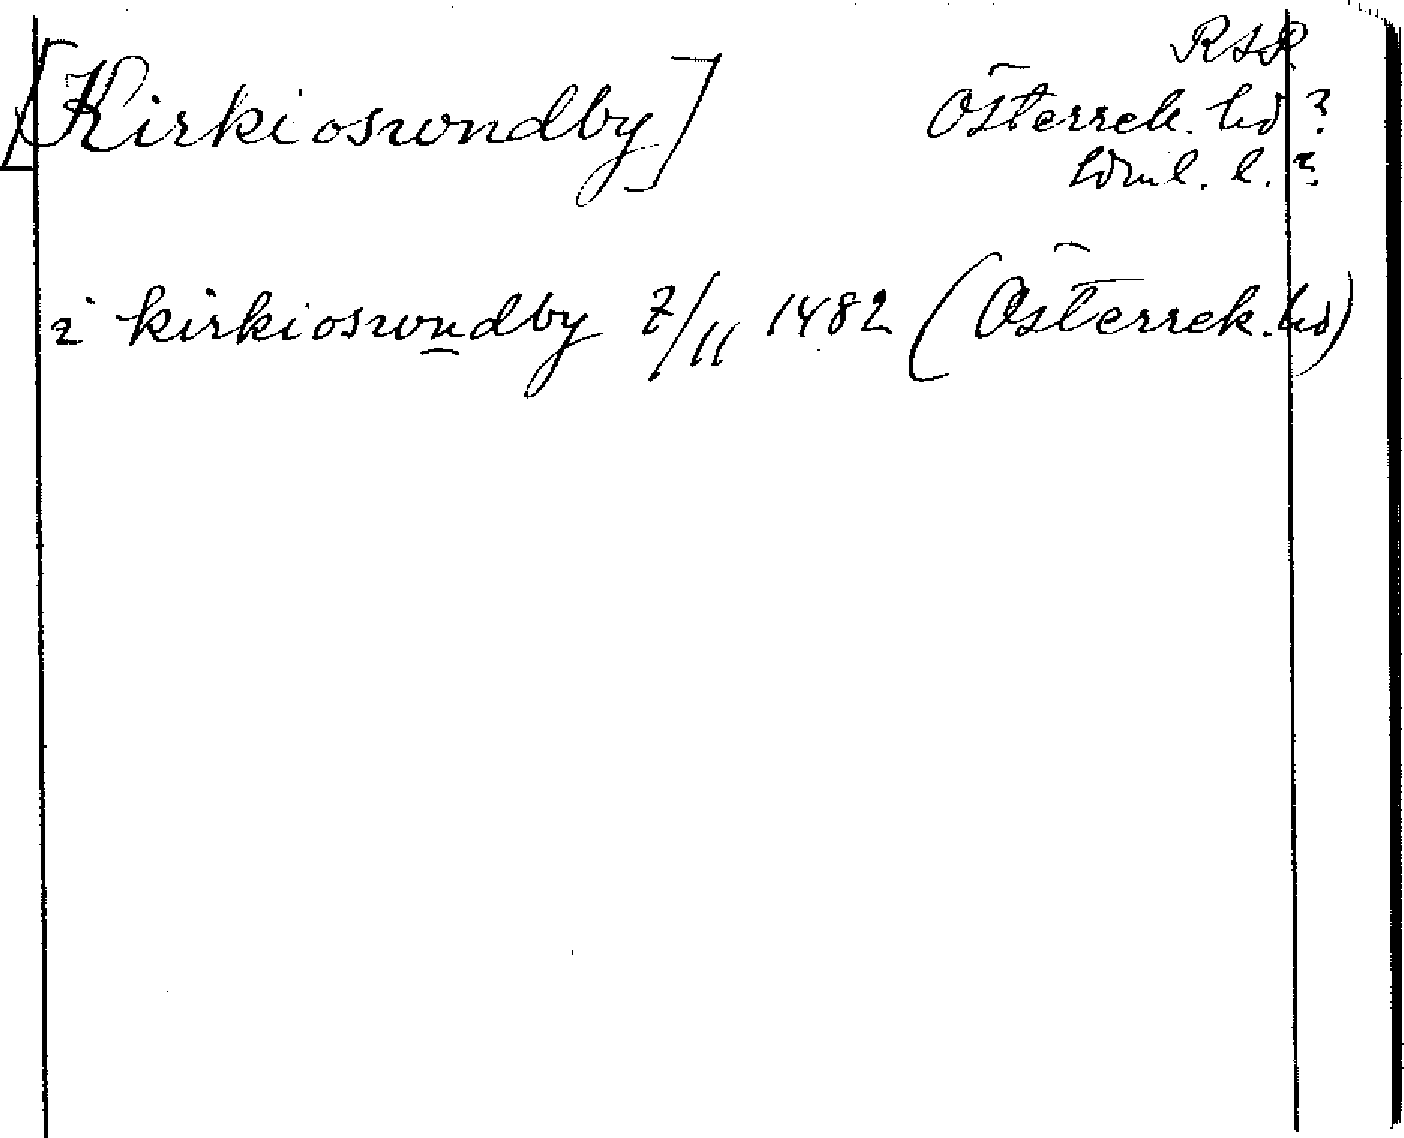 RAR
[Kirkiosundby] Österrek. hd?
Sdml. l.?
i kirkiosundby 7/11 1482 (Österrek. hd)